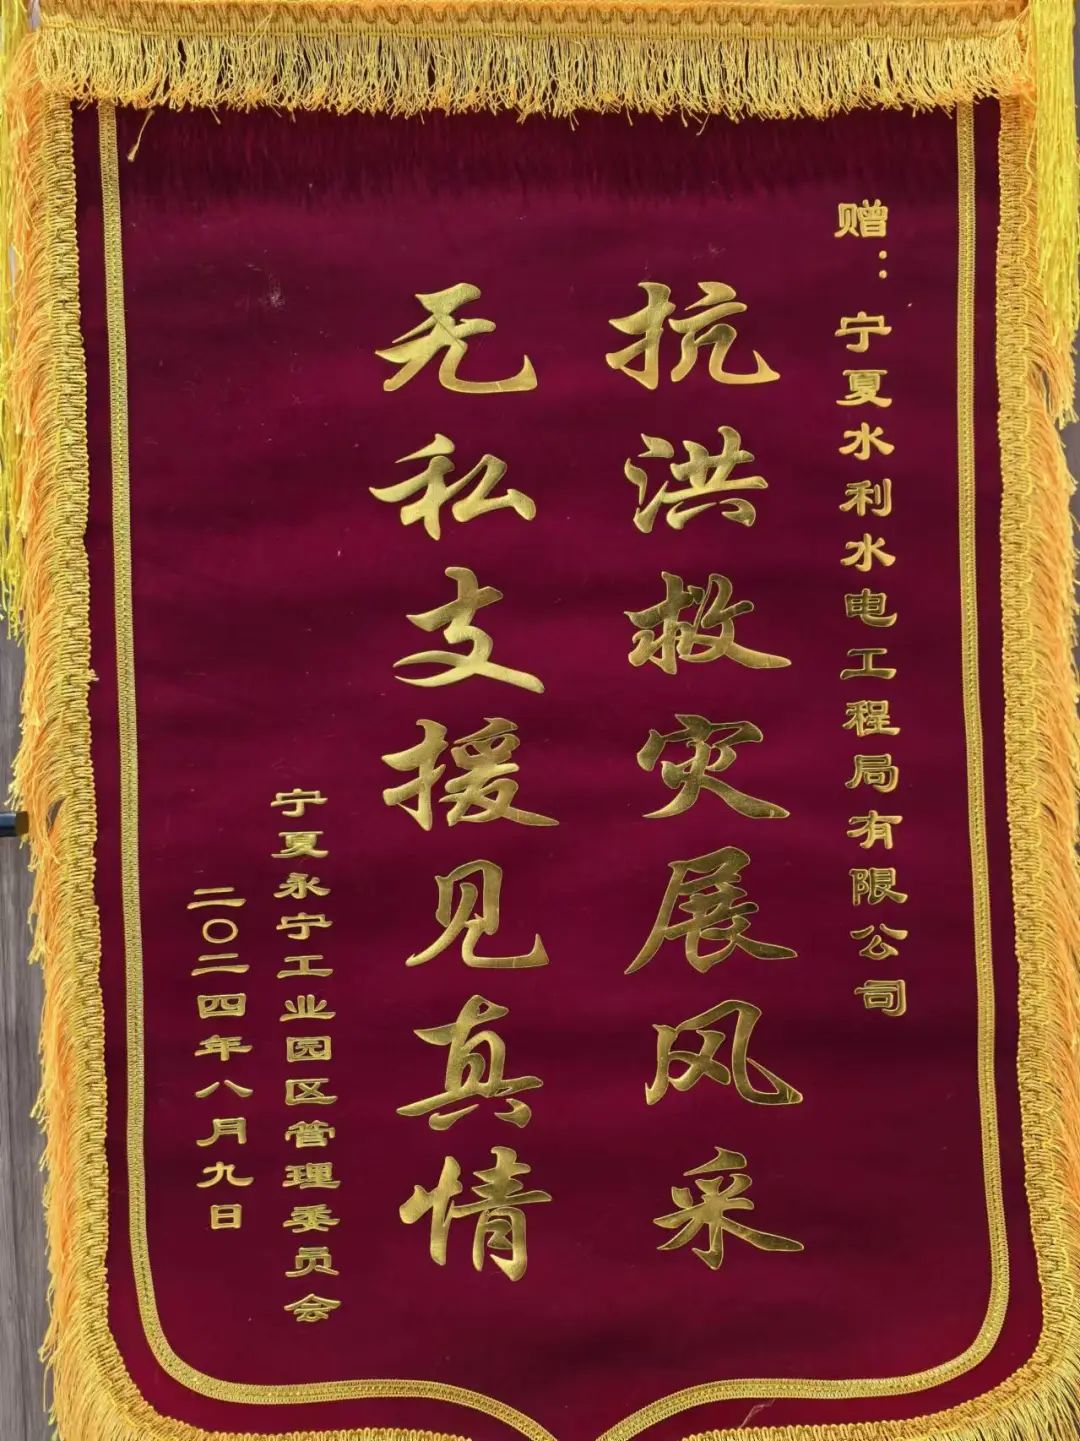 赠：宁夏水利水电工程局有限公司
抗洪救灾展风采
无私支援见真情
宁夏永宁工业园区管理委员会
二〇二四年八月九日